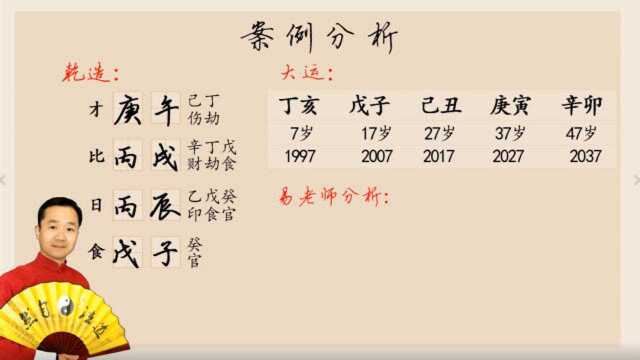 案例分析
乾造：
大运：
才 庚 午 己丁
伤劫
比 丙 戌 辛丁戊
财劫食
日 丙 辰 乙戊癸
印食官
食 戊 子 癸
官
丁亥 戊子 己丑 庚寅 辛卯
7岁 17岁 27岁 37岁 47岁
1997 2007 2017 2027 2037
易老师分析：